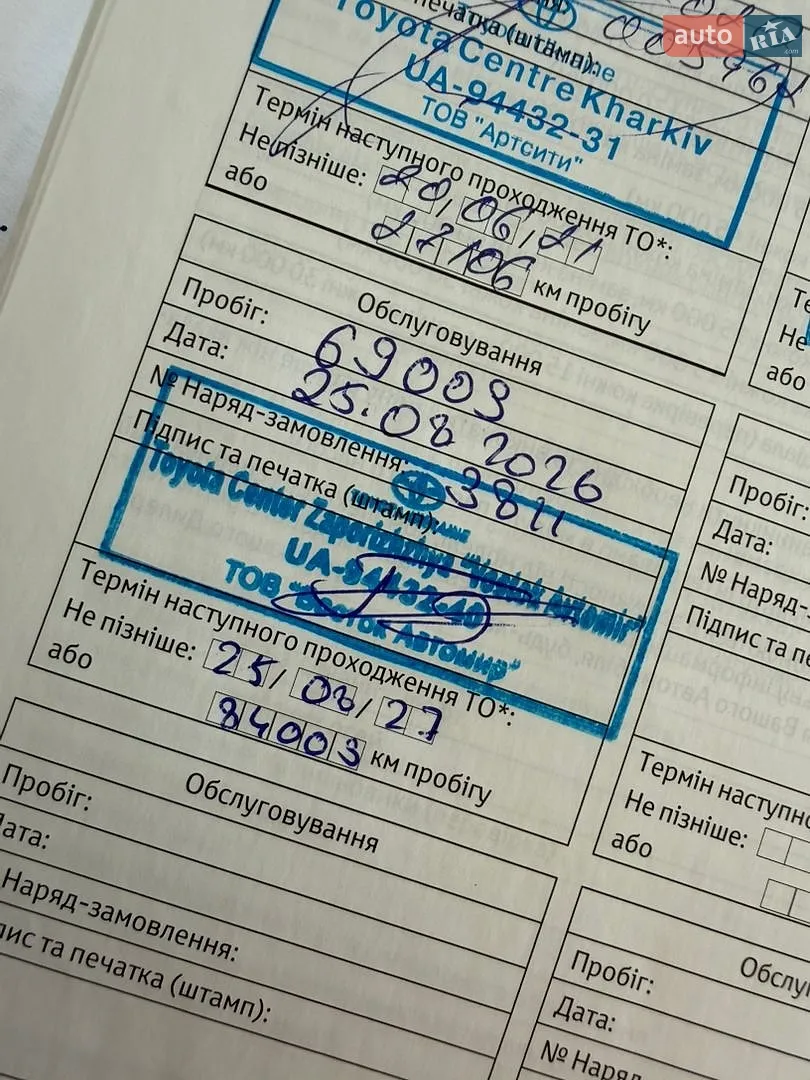 auto RIA.com
печатка (штамп):
Toyota Centre Kharkiv
UA-94432-31
ТОВ "Артсити"
Термін наступного проходження ТО*:
Не пізніше: 20/06/21
або
27106 км пробігу
Обслуговування
Пробіг: 69009
Дата: 25.08 2026
№ Наряд-замовлення: 3811
Підпис та печатка (штамп):
Toyota Center Zaporizhzhya "Vostok Avtomir"
UA-94432-40
ТОВ "Восток Автомир"
Термін наступного проходження ТО*:
Не пізніше: 25/08/27
або
84009 км пробігу
Обслуговування
Пробіг:
Дата:
Наряд-замовлення:
пис та печатка (штамп):
Те
Не
або
Пробіг:
Дата:
№ Наряд-
Підпис та пе
Термін наступно
Не пізніше:
або
Обслу
Пробіг:
Дата:
№ Наряд